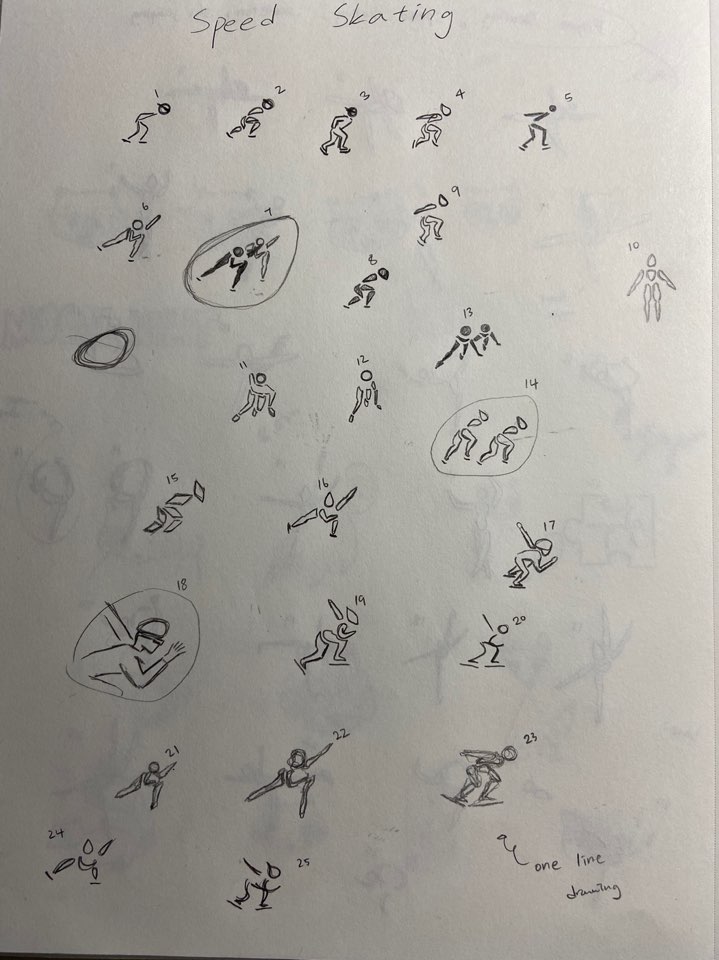 Speed Skating
1 2 3 4 5
6 7 9
8 10
13
11 12
14
15 16
17
18 19 20
21 22 23
24 25
one line
drawing